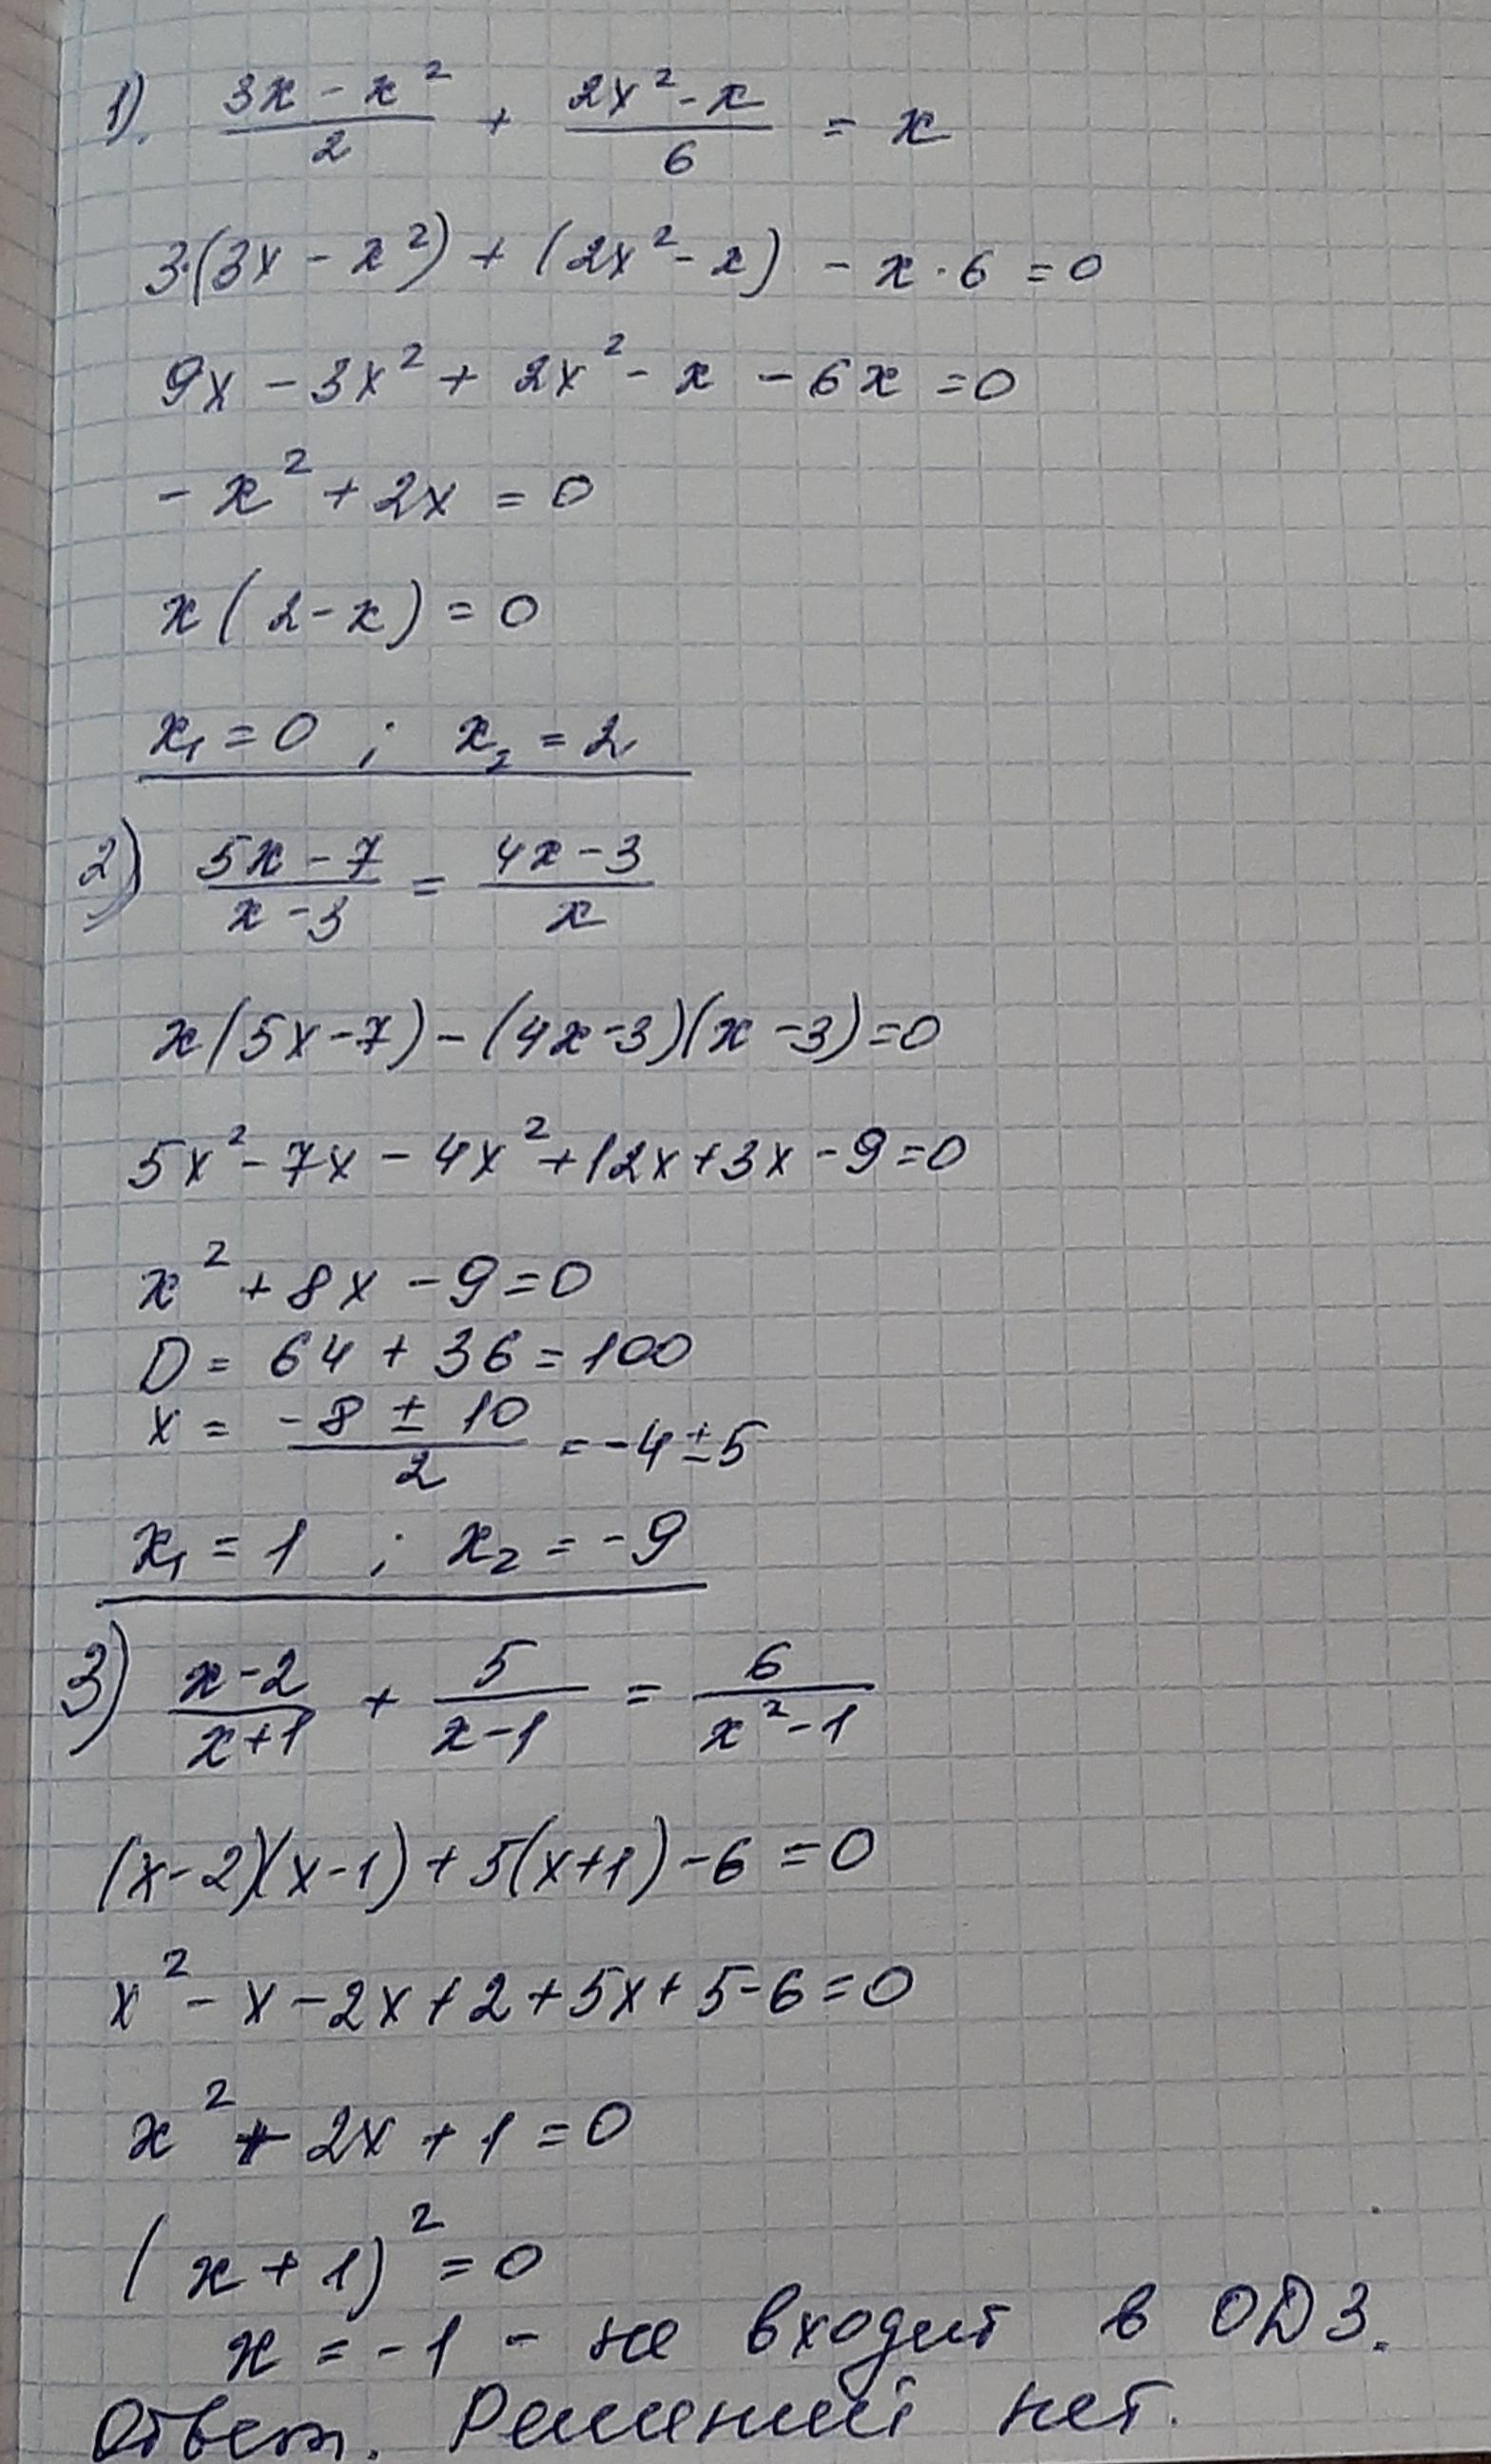 1). (3x - x²)/2 + (2x² - x)/6 = x
3·(3x - x²) + (2x² - x) - x · 6 = 0
9x - 3x² + 2x² - x - 6x = 0
- x² + 2x = 0
x(2 - x) = 0
x₁ = 0 ; x₂ = 2
2) (5x - 7)/(x - 3) = (4x - 3)/x
x(5x - 7) - (4x - 3)(x - 3) = 0
5x² - 7x - 4x² + 12x + 3x - 9 = 0
x² + 8x - 9 = 0
D = 64 + 36 = 100
x = (-8 ± 10)/2 = -4 ± 5
x₁ = 1 ; x₂ = -9
3) (x - 2)/(x + 1) + 5/(x - 1) = 6/(x² - 1)
(x - 2)(x - 1) + 5(x + 1) - 6 = 0
x² - x - 2x + 2 + 5x + 5 - 6 = 0
x² + 2x + 1 = 0
(x + 1)² = 0
x = -1 - не входит в ОДЗ.
Ответ. Решений нет.